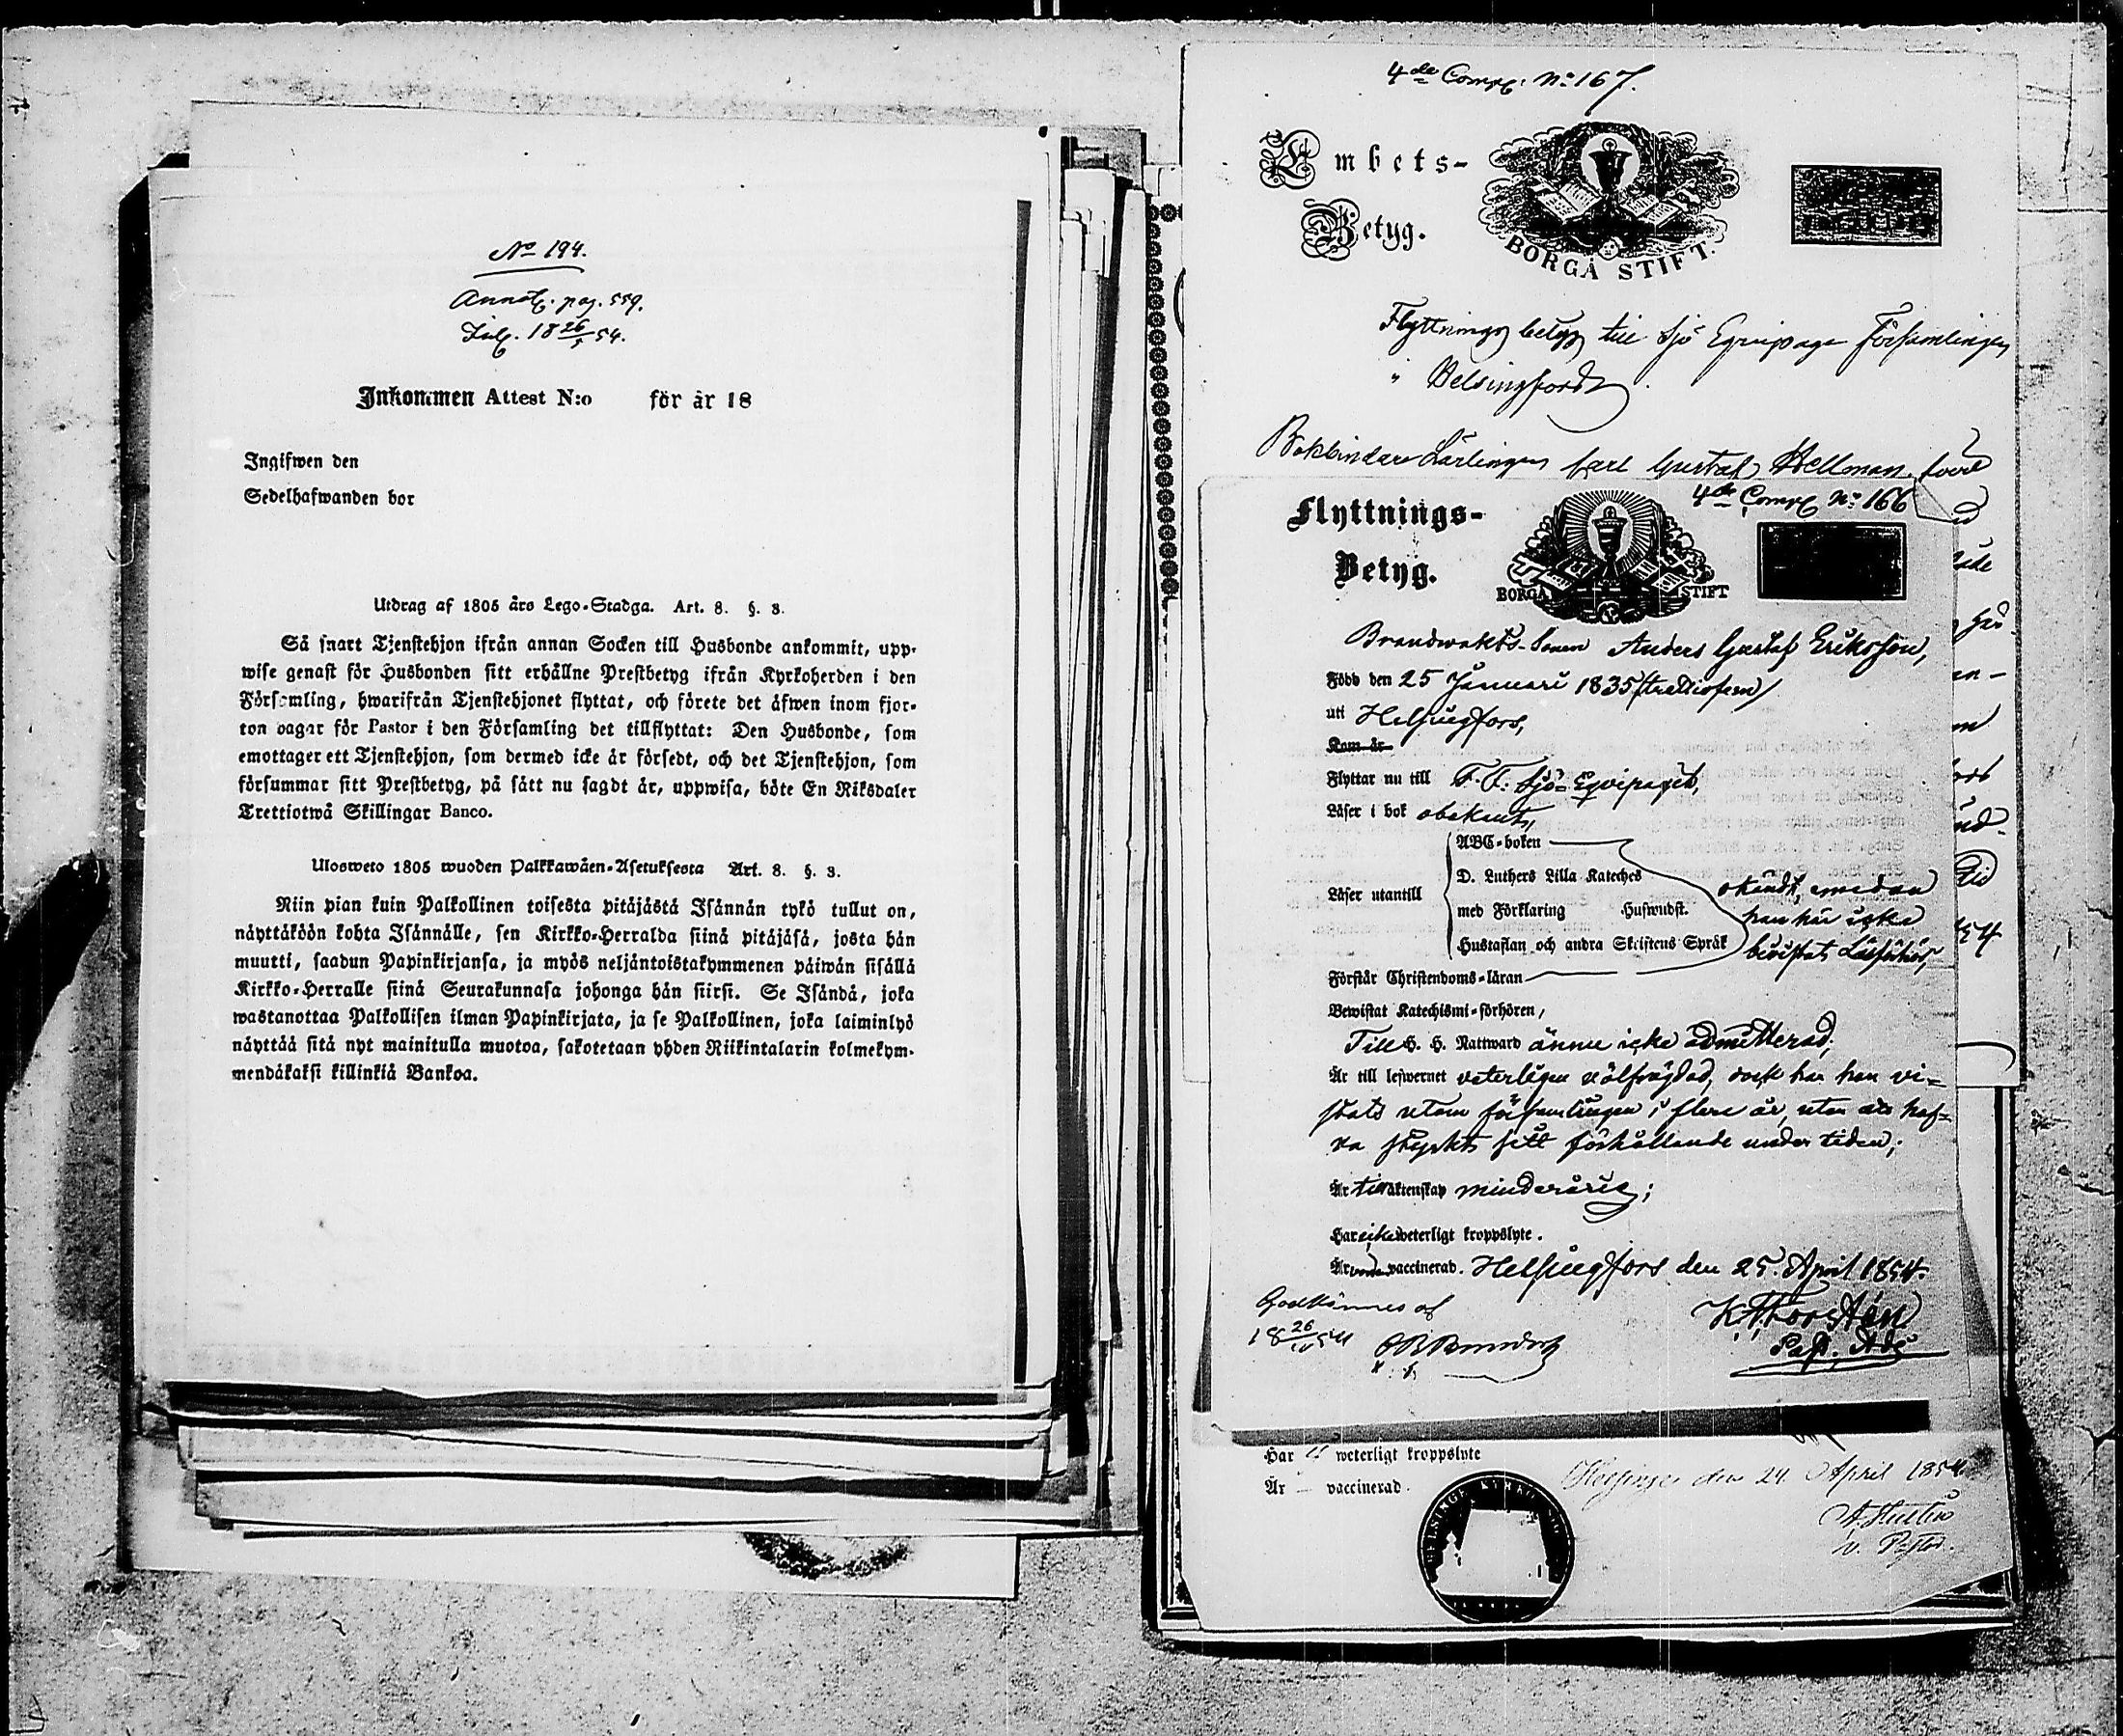 No 194.
Annot. pag. 559.
Inl. 18 26/5 54.
Inkommen Attest N:o för år 18
Ingifwen den
Sedelhafwanden bor
Utdrag af 1805 års Lego-Stadga. Art. 8. §. 3.
Så snart Tjenstehjon ifrån annan Socken till Husbonde ankommit, upp-
wise genast för Husbonden sitt erhållne Prestbetyg ifrån Kyrkoherden i den
Församling, hwarifrån Tjenstehjonet flyttat, och förete det äfwen inom fjor-
ton dagar för Pastor i den Församling det tillflyttat: Den Husbonde, som
emottager ett Tjenstehjon, som dermed icke är försedt, och det Tjenstehjon, som
försummar sitt Prestbetyg, på sätt nu sagdt är, uppwisa, böte En Riksdaler
Trettiotwå Skillingar Banco.
Ulosweto 1805 wuoden Palkkawäen-Asetuksesta Art. 8. §. 3.
Niin pian kuin Palkollinen toisesta pitäjästä Isännän tykö tullut on,
näyttäköön kohta Isännälle, sen Kirkko-Herralda siinä pitäjäsä, josta hän
muutti, saadun Papinkirjansa, ja myös neljäntoistakymmenen päiwän sisällä
Kirkko-Herralle siinä Seurakunnasa johonga hän siirsi. Se Isändä, joka
wastanottaa Palkollisen ilman Papinkirjata, ja se Palkollinen, joka laiminlyö
näyttää sitä nyt mainitulla muotoa, sakotetaan yhden Riikintalarin kolmekym-
mendäkaksi killinkiä Bankoa.
4de Comp. No 167.
Embets-
Betyg.
BORGÅ STIFT.
Flyttnings betyg till Sjö Equipage Församlingen
i Helsingfors.
Bokbindare Lärlingen Carl Gustaf Hellman, född
4de Comp No 166
Flyttnings-
Betyg.
BORGÅ STIFT
Brandwakts-Sonen Anders Gustaf Eriksson,
Född den 25 Januari 1835 (trettiofem)
uti Helsingfors,
Kom år
Flyttar nu till F. F. Sjö-Eqvipaget,
Läser i bok obekant,
ABC-boken
D. Luthers Lilla Kateches
Läser utantill
med Förklaring Huswudst.
Hustaflan och andra Skriftens Språk
okändt, emedan
han här icke
bevistat Läsförhör,
Förstår Christendoms-läran
Bewistat Katechismi-förhören,
Till H. H. Nattward ännu icke admitterad;
Är till lefwernet veterligen välfrägdad, dock har han vi-
stats utom församlingen i flere år, utan att haf-
va styrkt sitt förhållande under tiden;
Är till äktenskap minderårig;
Har icke weterligt kroppslyte.
Är vaccinerad. Helsingfors den 25. April 1854.
Godkännes af
18 26/IV 54
K. A. Forstén
Past. Adj.
Har ej weterligt kroppslyte
Är vaccinerad.
Helsinge den 24 April 1854.
v. Pastor.